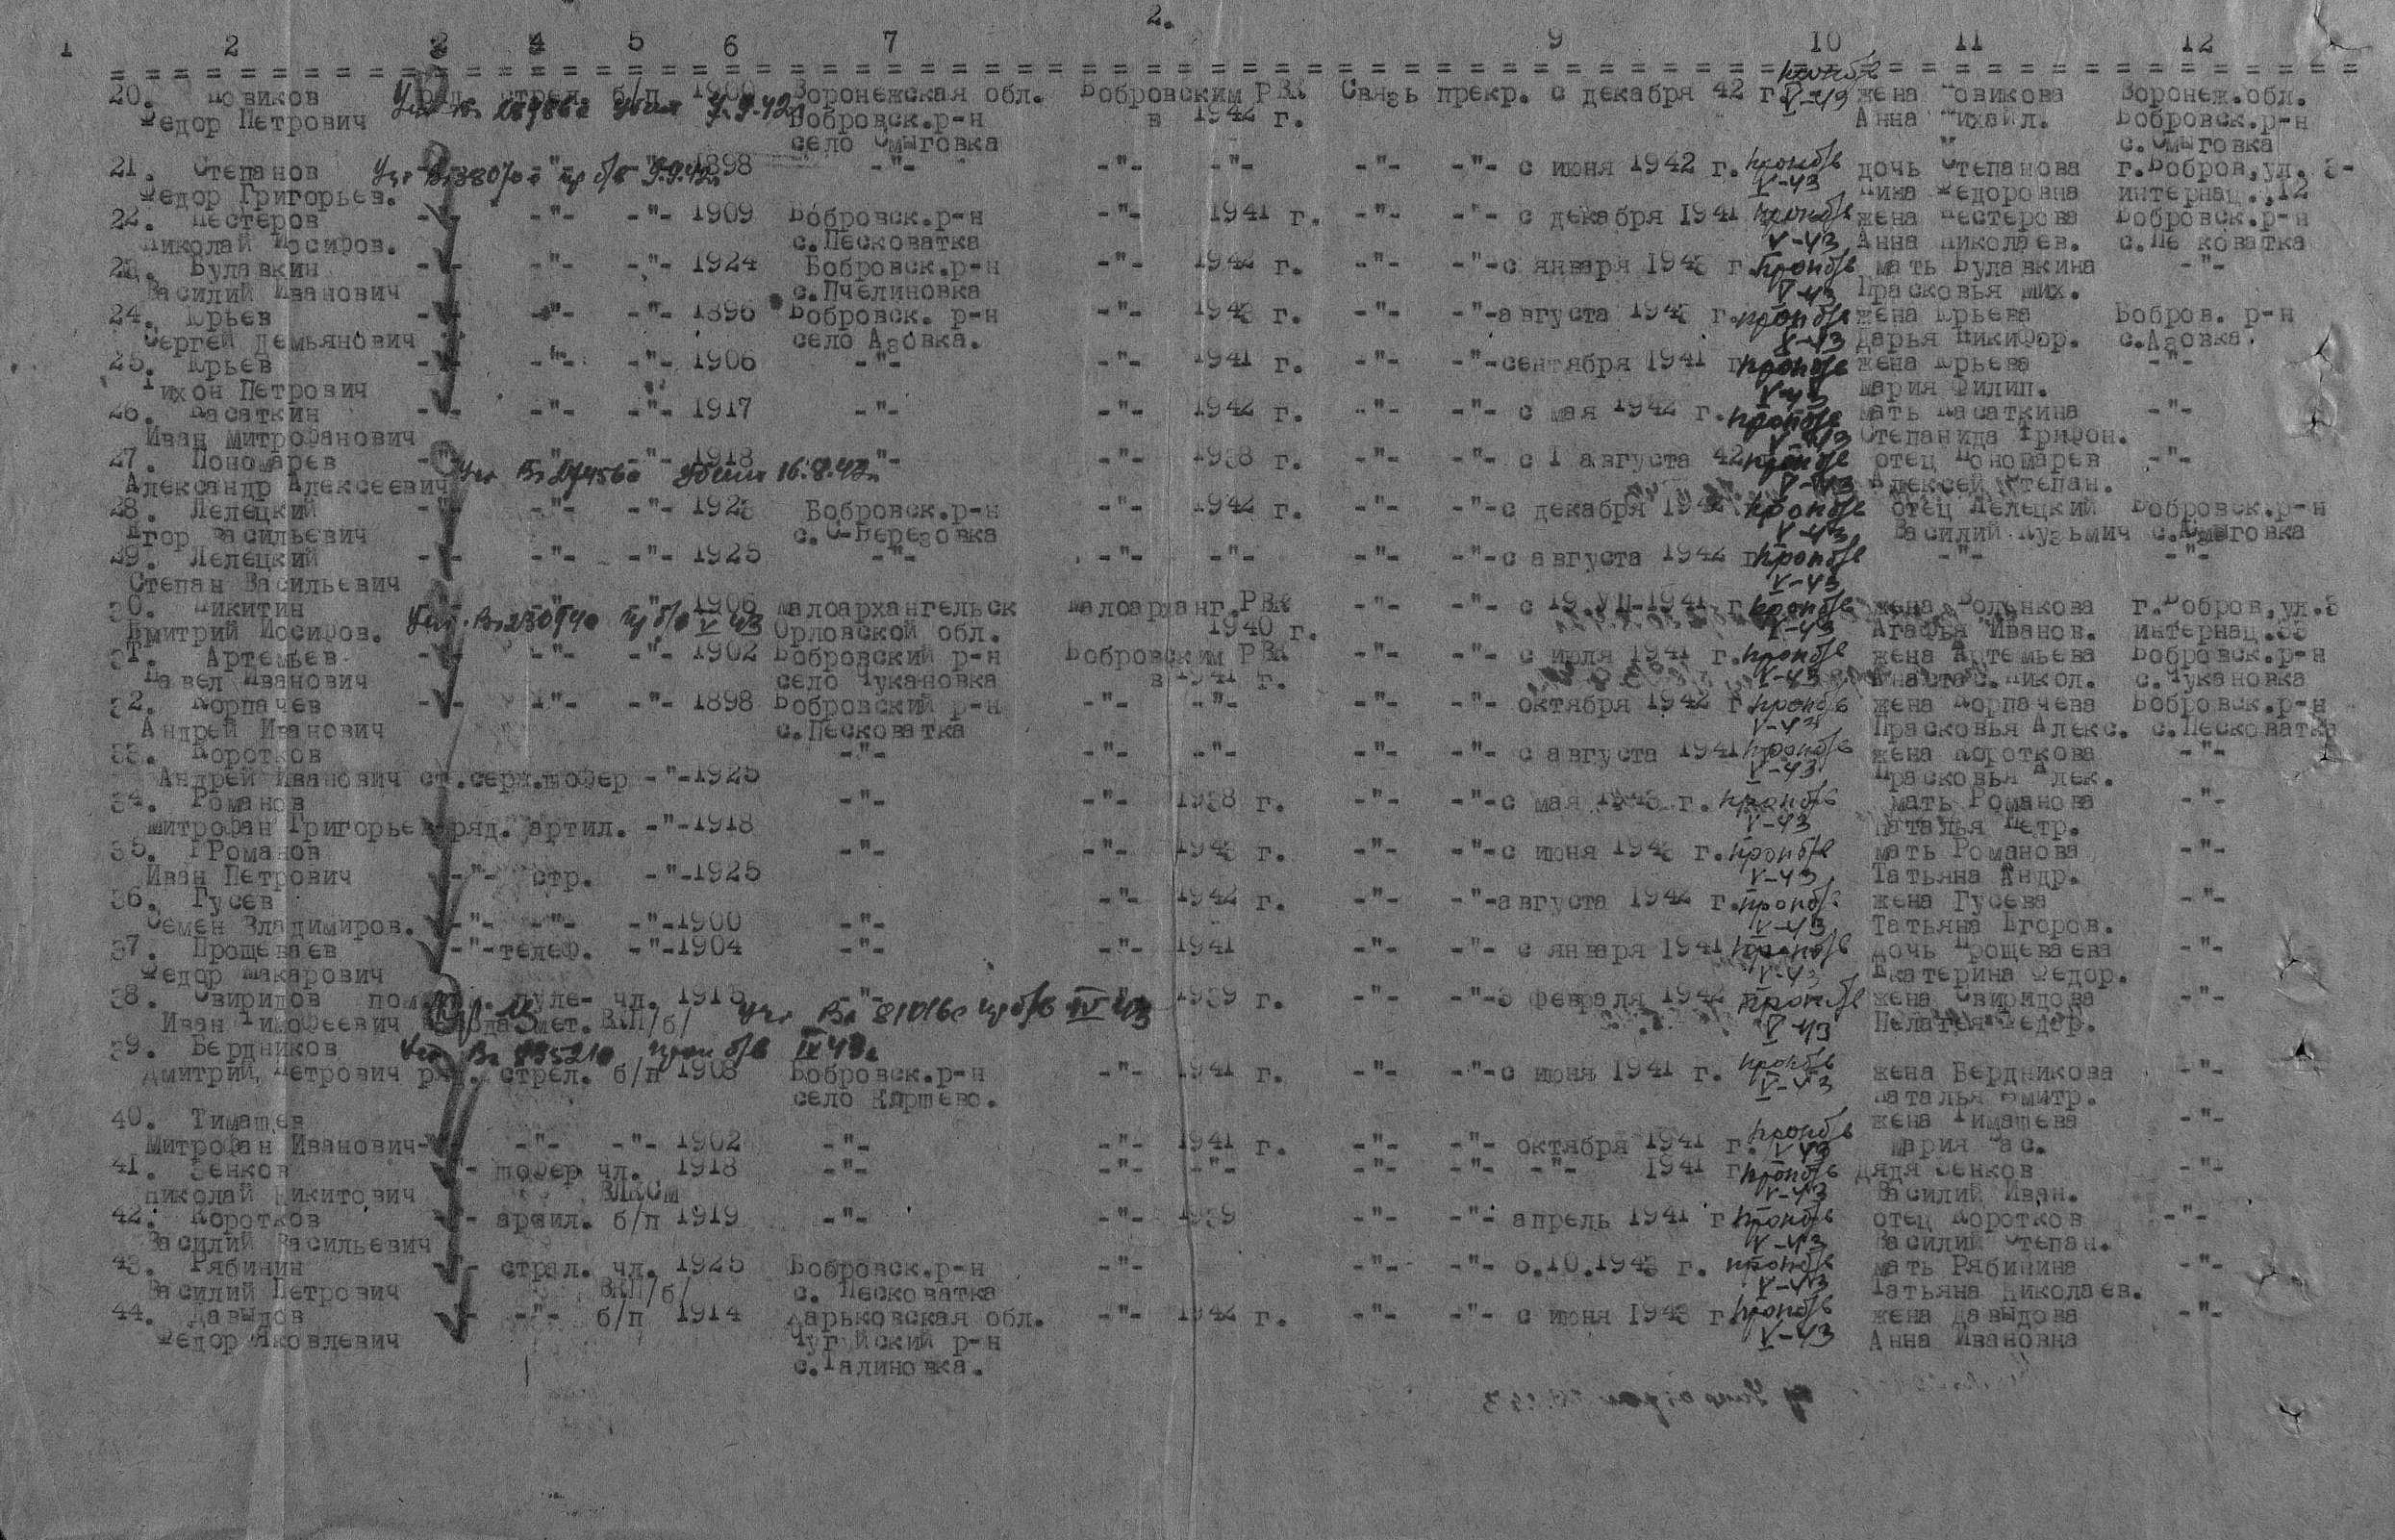 2.
1 2 3 4 5 6 7 9 10 11 12
20. Новиков стрел. б/п 1900 Воронежская обл. Бобровским РВК Связь прекр. с декабря 42 г. проп б/в V-43 жена Новикова Воронеж.обл.
Федор Петрович убит 7.9.42г Бобровск.р-н в 1942 г. Анна Михайл. Бобровск.р-н
село Смыговка с.Смыговка
21. Степанов -"- 1898 -"- -"- -"- -"- -"- с июня 1942 г. проп б/в дочь Степанова г.Бобров,ул. 3-
Федор Григорьев. V-43 Нина Федоровна интернац.,12
22. Нестеров -"- -"- -"- 1909 Бобровск.р-н -"- 1941 г. -"- -"- с декабря 1941 проп б/в жена Нестерова Бобровск.р-н
Николай Иосифов. с.Песковатка V-43 Анна Николаев. с.Пе коватка
23. Булавкин -"- -"- -"- 1924 Бобровск.р-н -"- 1942 г. -"- -"-с января 1943 г. проп б/в мать Булавкина -"-
Василий Иванович с.Пчелиновка V-43 Прасковья Мих.
24. Юрьев -"- -"- -"- 1896 Бобровск. р-н -"- 1943 г. -"- -"-августа 1943 г. проп б/в жена Юрьева Бобров. р-н
Сергей Демьянович село Азовка. X-43 Дарья Никифор. с.Азовка.
25. Юрьев -"- -"- -"- 1906 -"- -"- 1941 г. -"- -"-сентября 1941 г проп б/в жена Юрьева -"-
Тихон Петрович V-43 Мария Филип.
26. Касаткин -"- -"- -"- 1917 -"- -"- 1942 г. -"- -"- с мая 1942 г. проп б/в мать Касаткина -"-
Иван Митрофанович V-43 Степанида Трифон.
27. Пономарев -"- -"- 1918 -"- -"- 1938 г. -"- -"- с 1 августа 42 проп б/в отец Пономарев -"-
Александр Алексеевич убит V-43 Алексей Степан.
28. Лелецкий -"- -"- -"- 1923 Бобровск.р-н -"- 1942 г. -"- -"-с декабря 1942 проп б/в отец Лелецкий Бобровск.р-н
Егор Васильевич с.С-Березовка V-43 Василий Кузьмич с.Смыговка
29. Лелецкий -"- -"- -"- 1925 -"- -"- -"- -"- -"-с августа 1942 г проп б/в -"- -"-
Степан Васильевич V-43
30. Никитин -"- 1906 Малоархангельск Малоарханг.РВК -"- -"- с 19.УП-1941 г проп б/в жена Роленкова г.Бобров,ул.3
Дмитрий Иосифов. V 43 Орловской обл. 1940 г. V-43 Агафья Иванов. интернац.35
31. Артемьев -"- -"- -"- 1902 Бобровский р-н Бобровским РВК -"- -"- с июля 1941 г. проп б/в жена Артемьева Бобровск.р-н
Павел Иванович село Чукановка в 1941 г. V-43 Анастас.Никол. с.Чукановка
32. Корпачев -"- -"- -"- 1898 Бобровский р-н -"- -"- -"- -"- октября 1942 г. проп б/в жена Корпачева Бобровск.р-н
Андрей Иванович с.Песковатка V-43 Прасковья Алекс. с.Песковатка
33. Коротков -"- -"- -"- -"- -"- с августа 1941 проп б/в жена Короткова -"-
Андрей Иванович ст.серж.шофер -"-1925 V-43 Прасковья Алек.
34. Романов -"- -"- 1938 г. -"- -"-с мая 1943 г. проп б/в мать Романова -"-
Митрофан Григорьев ряд. артил. -"-1918 V-43 Наталья Петр.
35. ГРоманов -"- -"- 1943 г. -"- -"-с июня 1943 г. проп б/в мать Романова -"-
Иван Петрович -"- стр. -"-1925 V-43 Татьяна Андр.
36. Гусев -"- 1942 г. -"- -"-августа 1942 г. проп б/в жена Гусева -"-
Семен Владимиров. -"- -"- -"-1900 -"- V-43 Татьяна Егоров.
37. Прощеваев -"-телеф. -"-1904 -"- -"- 1941 -"- -"- с января 1941 проп б/в дочь Прощеваева -"-
Федор Макарович V-43 Екатерина Федор.
38. Свиридов пом. пуле- чл. 1915 -"- 1939 г. -"- -"-3 февраля 1942 проп б/в жена Свиридова -"-
Иван Тимофеевич мет. ВКП/б/ V-43 Пелагея Федор.
39. Бердников
Дмитрий Петрович ряд. стрел. б/п 1908 Бобровск.р-н -"- 1941 г. -"- -"-с июня 1941 г. проп б/в V-43 жена Бердникова -"-
село Коршево. Наталья Дмитр.
40. Тимашев жена Тимашева -"-
Митрофан Иванович-"- -"- -"- 1902 -"- -"- 1941 г. -"- -"- октября 1941 г. проп б/в V-43 Мария Вас.
41. Зенков -"- шофер чл. 1918 -"- -"- -"- -"- -"- -"- 1941 г проп б/в дядя Зенков -"-
Николай Никитович ВЛКСМ V-43 Василий Иван.
42. Коротков -"- артил. б/п 1919 -"- -"- 1939 -"- -"- апрель 1941 г проп б/в отец Коротков -"-
Василий Васильевич V-43 Василий Степан.
43. Рябинин -"- стрел. чл. 1925 Бобровск.р-н -"- -"- -"- 5.10.1943 г. проп б/в мать Рябинина -"-
Василий Петрович ВКП/б/ с. Песковатка V-43 Татьяна Николаев.
44. Давыдов -"- -"- б/п 1914 Харьковская обл. -"- 1942 г. -"- -"- с июня 1943 г. проп б/в жена Давыдова -"-
Федор Яковлевич Чугуйский р-н V-43 Анна Ивановна
с.Галиновка.